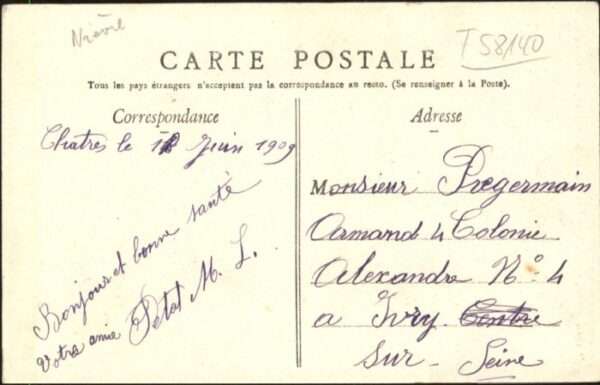 Nièvre
T 58/140
CARTE POSTALE
Tous les pays étrangers n'acceptent pas la correspondance au recto. (Se renseigner à la Poste).
Correspondance
Chatres le 18 Juin 1909
Bonjour et bonne santé
Votre amie Petot M. L.
Adresse
Monsieur Pregermain
Armand 4 Colonie
Alexandre N° 4
a Ivry Centre
Sur - Seine